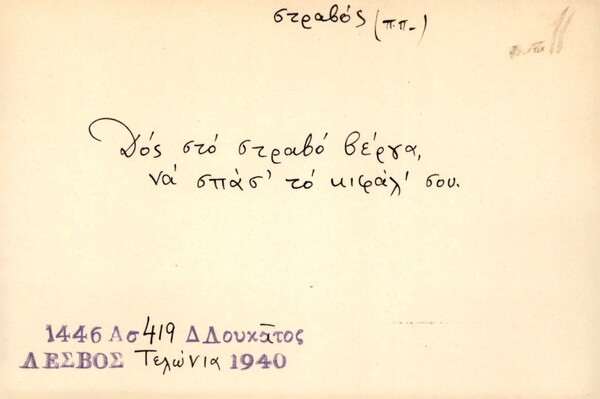 στραβός (π.π.)
Δός στό στραβό βέργα,
νά σπάσ' τό κιφάλ' σου.
1446 Ασ 419 Δ Λουκᾶτος
ΛΕΣΒΟΣ Τελώνια 1940